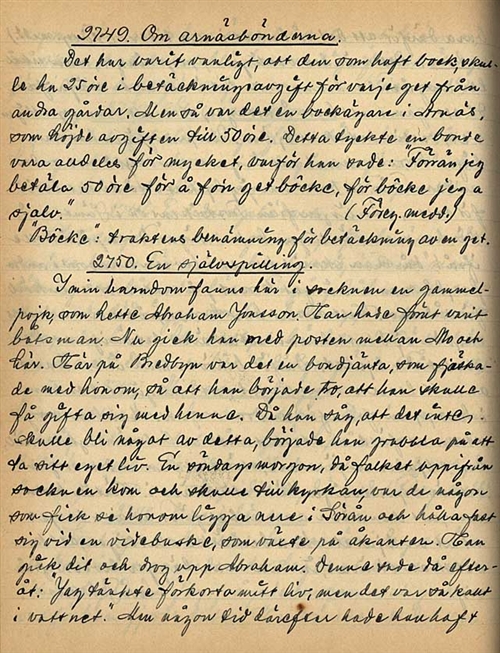 2749. Om arnäsbönderna.
Det har varit vanligt, att den som haft bock, skul-
le ha 25 öre i betäckningsavgift för varje get från
andra gårdar. Men så var det en bockägare i Arnäs,
som höjde avgiften till 50 öre. Detta tyckte en bonde
vara alldeles för mycket, varför han sade: "Förrän jeg
betäla 50 öre för å få'n get böcke, för böcke jeg a
sjalv." (Föreg. medd.)
"Böcke": traktens benämning för betäckning av en get.
2750. En självspilling.
I min barndom fanns här i socknen en gammel-
pojk, som hette Abraham Jonsson. Han hade förut varit
båtsman. Nu gick han med posten mellan Mo och
här. Här på Bredbyn var det en bondjänta, som fjäska-
de med honom, så att han började tro, att han skulle
få gifta sig med henne. Då han såg, att det inte
skulle bli något av detta, började han grubbla på att
ta sitt eget liv. En söndagsmorgon, då folket uppifrån
socknen kom och skulle till kyrkan, var de någon
som fick se honom ligga nere i Sörån och hålla fast
sig vid en videbuske, som växte på åkanten. Han
gick dit och drog upp Abraham. Denne sade då efter-
åt: "Jag tänkte förkorta mitt liv, men det var så kallt
i vattnet." Men någon tid därefter hade han haft